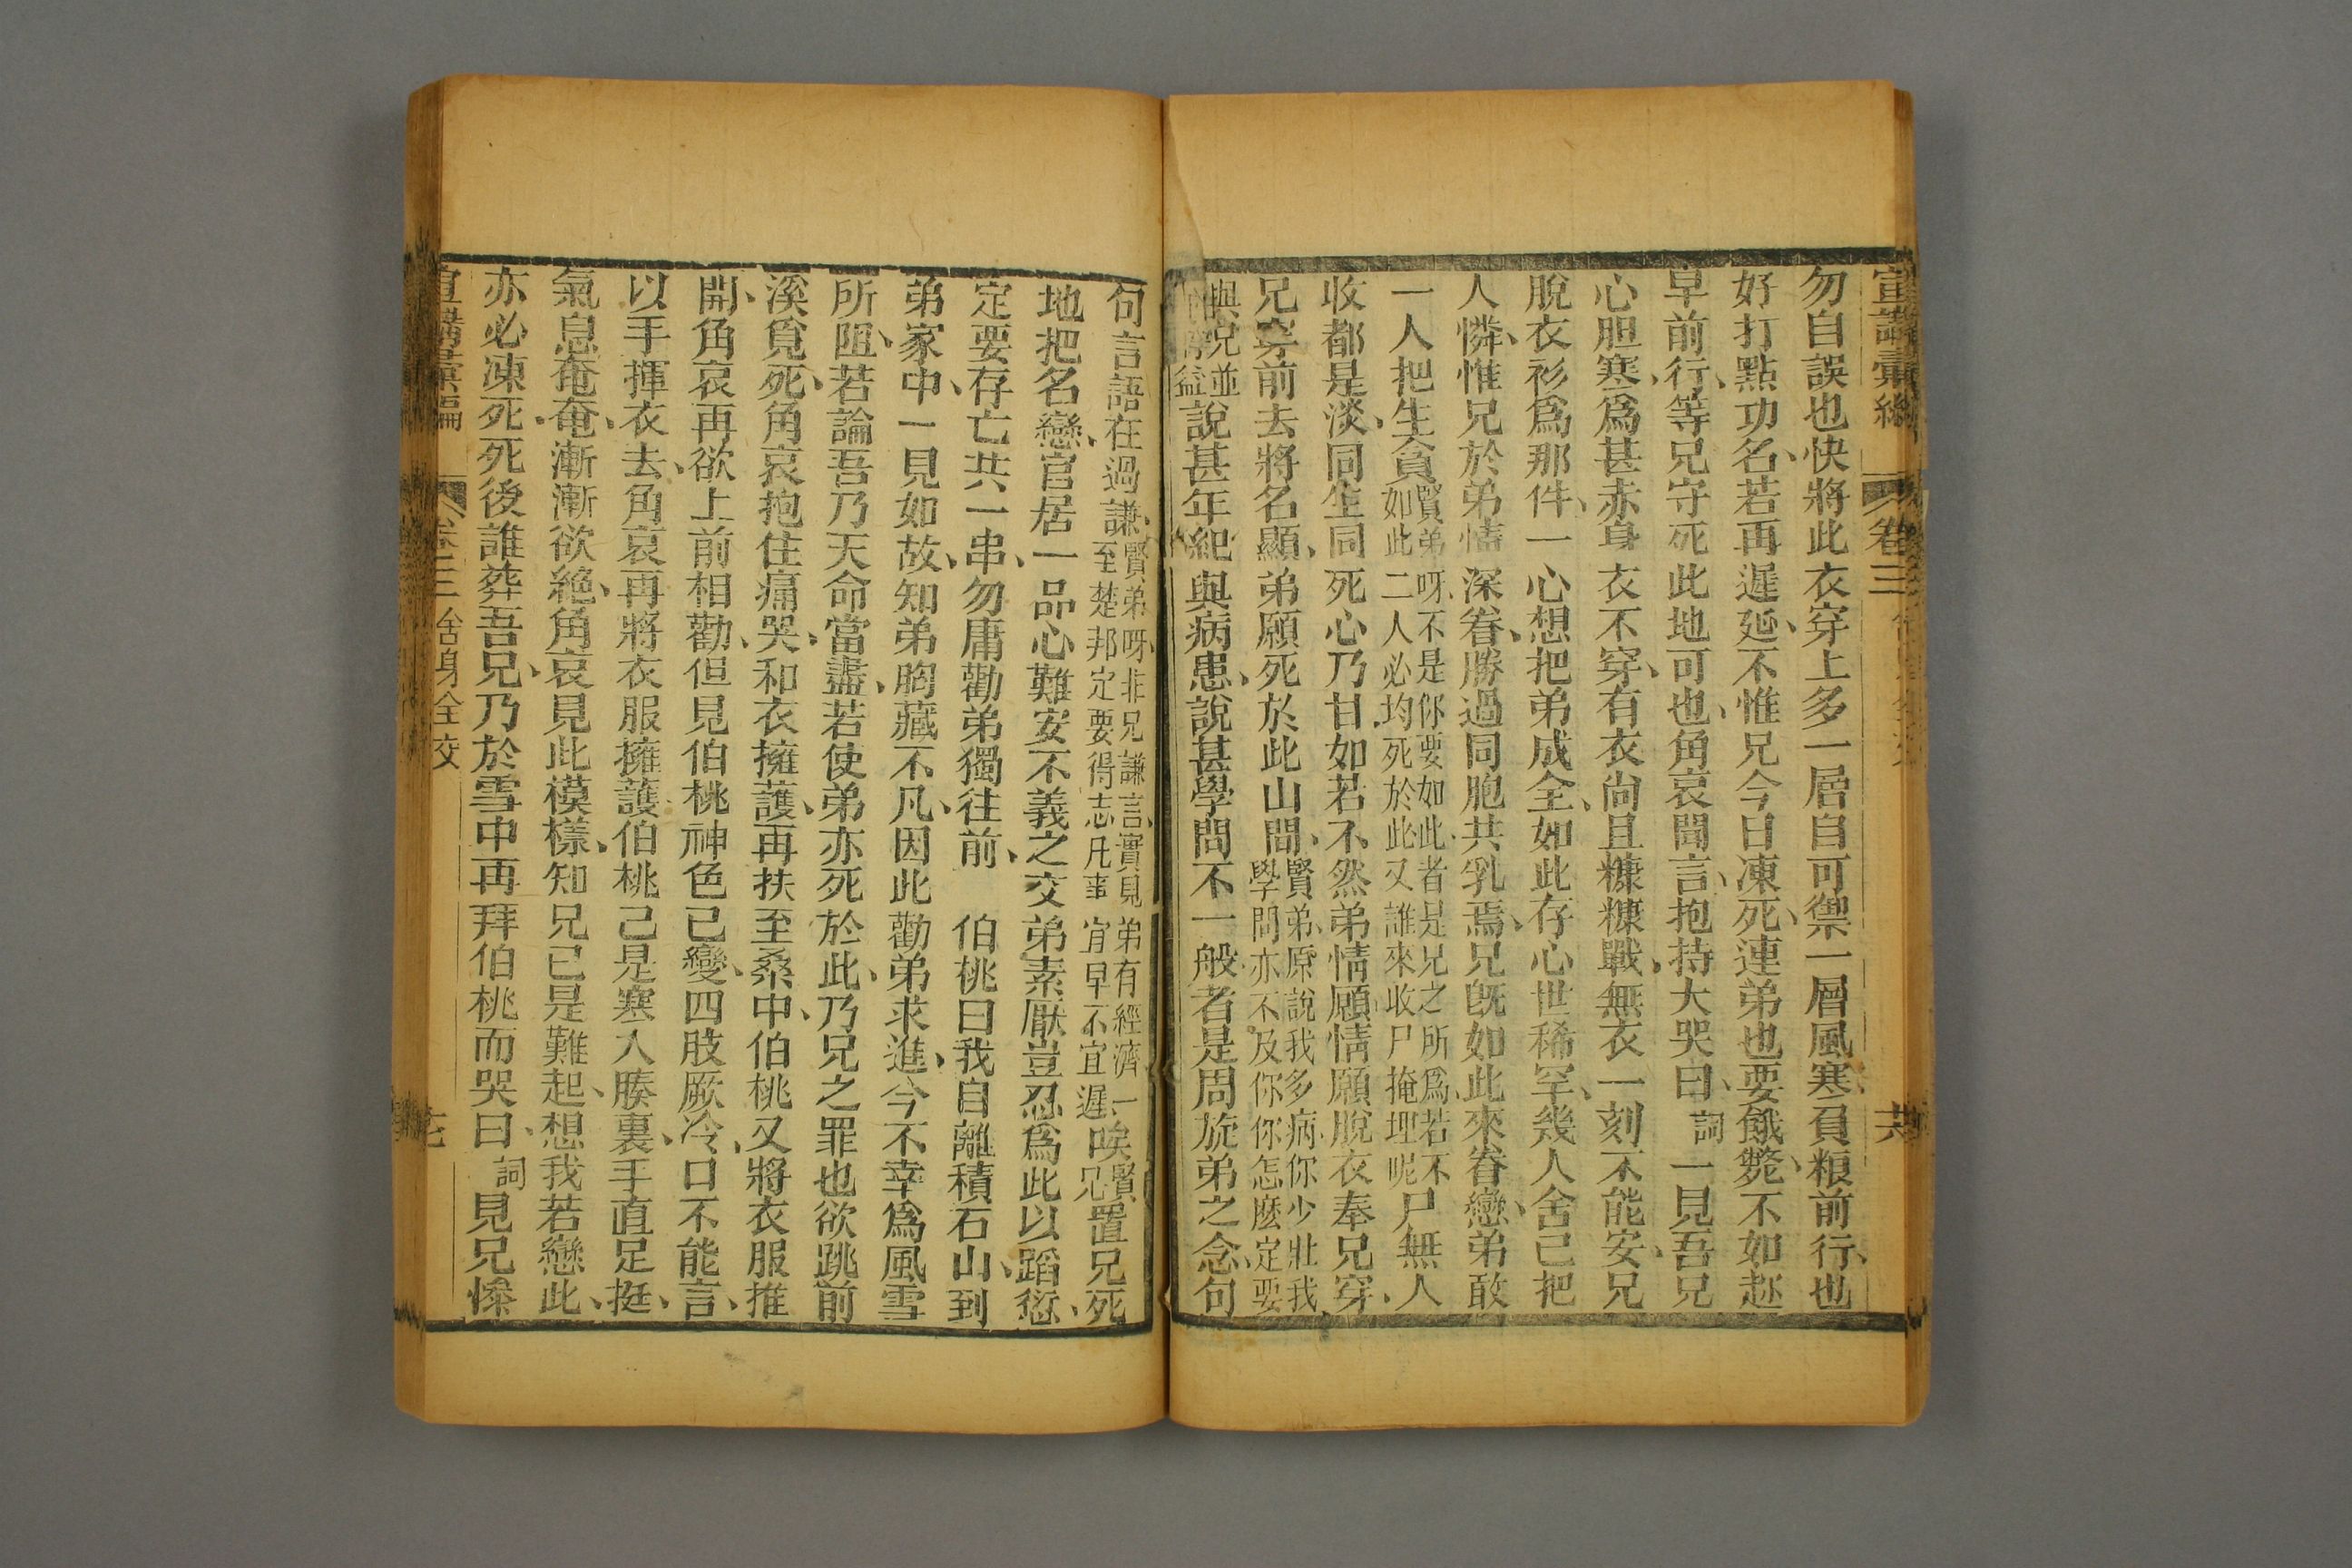 宣講彙編 卷三 共
勿自誤也快將此衣穿上多一層自可禦一層風寒負粮前行、也
好打點功名、若再遲延、不惟兄今日凍死、連弟也要餓斃、不如趂
早前行、等兄守死此地可也、角哀聞言、抱持大哭曰、詞一見吾兄
心胆寒、爲甚赤身衣不穿、有衣尙且糠糠戰、無衣一刻不能安、兄
脫衣衫爲那件、一心想把弟成全、如此存心世稀罕、幾人舍己把
人憐、惟兄於弟情深眷、勝過同胞共乳焉、兄旣如此來眷戀、弟敢
一人把生貪賢弟呀、不是你要如此、者是兄之所爲、若不
如此二人必均死於此又誰來收尸掩埋呢尸無人
收都是淡、同生同死心乃甘、如若不然弟情願、情願脫衣奉兄穿、
兄穿前去將名顯、弟願死於此山間、賢弟、原說我多病、你少壯、我
學問亦不及你、你怎麽定要
與兄並
益說甚年紀與病患、說甚學問不一般、者是周旋弟之念、句
句言語在過謙、賢弟呀、非兄謙言、實見弟有經濟、一
至楚邦定要得志凡事宜早不宜遲唉賢
兄置兄死
地把名戀、官居一品心難安、不義之交弟素厭、豈忍爲此以蹈愆、
定要存亡共一串、勿庸勸弟獨往前、伯桃曰我自離積石山、到
弟家中、一見如故、知弟胸藏不凡、因此勸弟求進、今不幸爲風雪
所阻、若論吾乃天命當盡、若使弟亦死於此、乃兄之罪也欲跳前
溪覓死、角哀抱住痛哭、和衣擁護、再扶至桑中、伯桃又將衣服推
開、角哀再欲上前相勸、但見伯桃神色已變、四肢厥冷、口不能言、
以手揮衣去、角哀再將衣服擁護伯桃已是寒入腠裏、手直足挺、
氣息奄奄、漸漸欲絶、角哀見此模樣、知兄已是難起、想我若戀此、
亦必凍死、死後誰葬吾兄、乃於雪中再拜伯桃而哭曰、詞見兄慘
宣講彙編 卷三 舍身全交